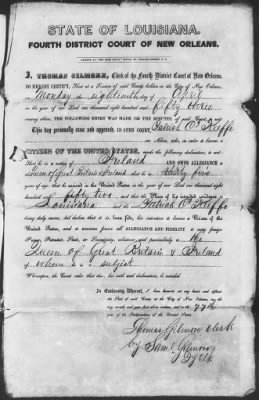 STATE OF LOUISIANA.
FOURTH DISTRICT COURT OF NEW ORLEANS.
I, THOMAS GILMORE, Clerk of the Fourth District Court of New Orleans,
DO HEREBY CERTIFY, That at a Session of said Court holden in the City of New Orleans, on
Monday the eighteenth day of April
in the year of our Lord one thousand eight hundred and fifty three
among other, THE FOLLOWING ENTRY WAS MADE ON THE MINUTES of said Court, to wit:
This day personally came and appeared IN OPEN COURT, Patrick O'Keeffe
an Alien, who, in order to become a
CITIZEN OF THE UNITED STATES, made the following declaration, to wit:
That he is a native of Ireland AND OWES ALLEGIANCE to
Queen of Great Britain & Ireland that he is thirty five
years of age, that he arrived in the United States in the year of our Lord one thousand eight
hundred fifty two and that the Place of his intended residence is
Louisiana and the said Patrick O'Keeffe
being duly sworn, did declare, that it is, bona fide, his intention to become a Citizen of the
United States, and to renounce forever all ALLEGIANCE AND FIDELITY to every foreign
Prince, Potentate, State, or Sovereignty, whatever, and particularly to the
Queen of Great Britain & Ireland
of whom he is a subject
Whereupon, the Court order that this oath and declaration, be recorded.
In Testimony Whereof, I have hereunto set my hand and affixed
the Seal of said Court, at the City of New Orleans, on the day,
month, and year first above written, and in the 77th
year of the Independence of the United States.
Thomas Gilmore clerk
by Saml Gilmore
Dy clk